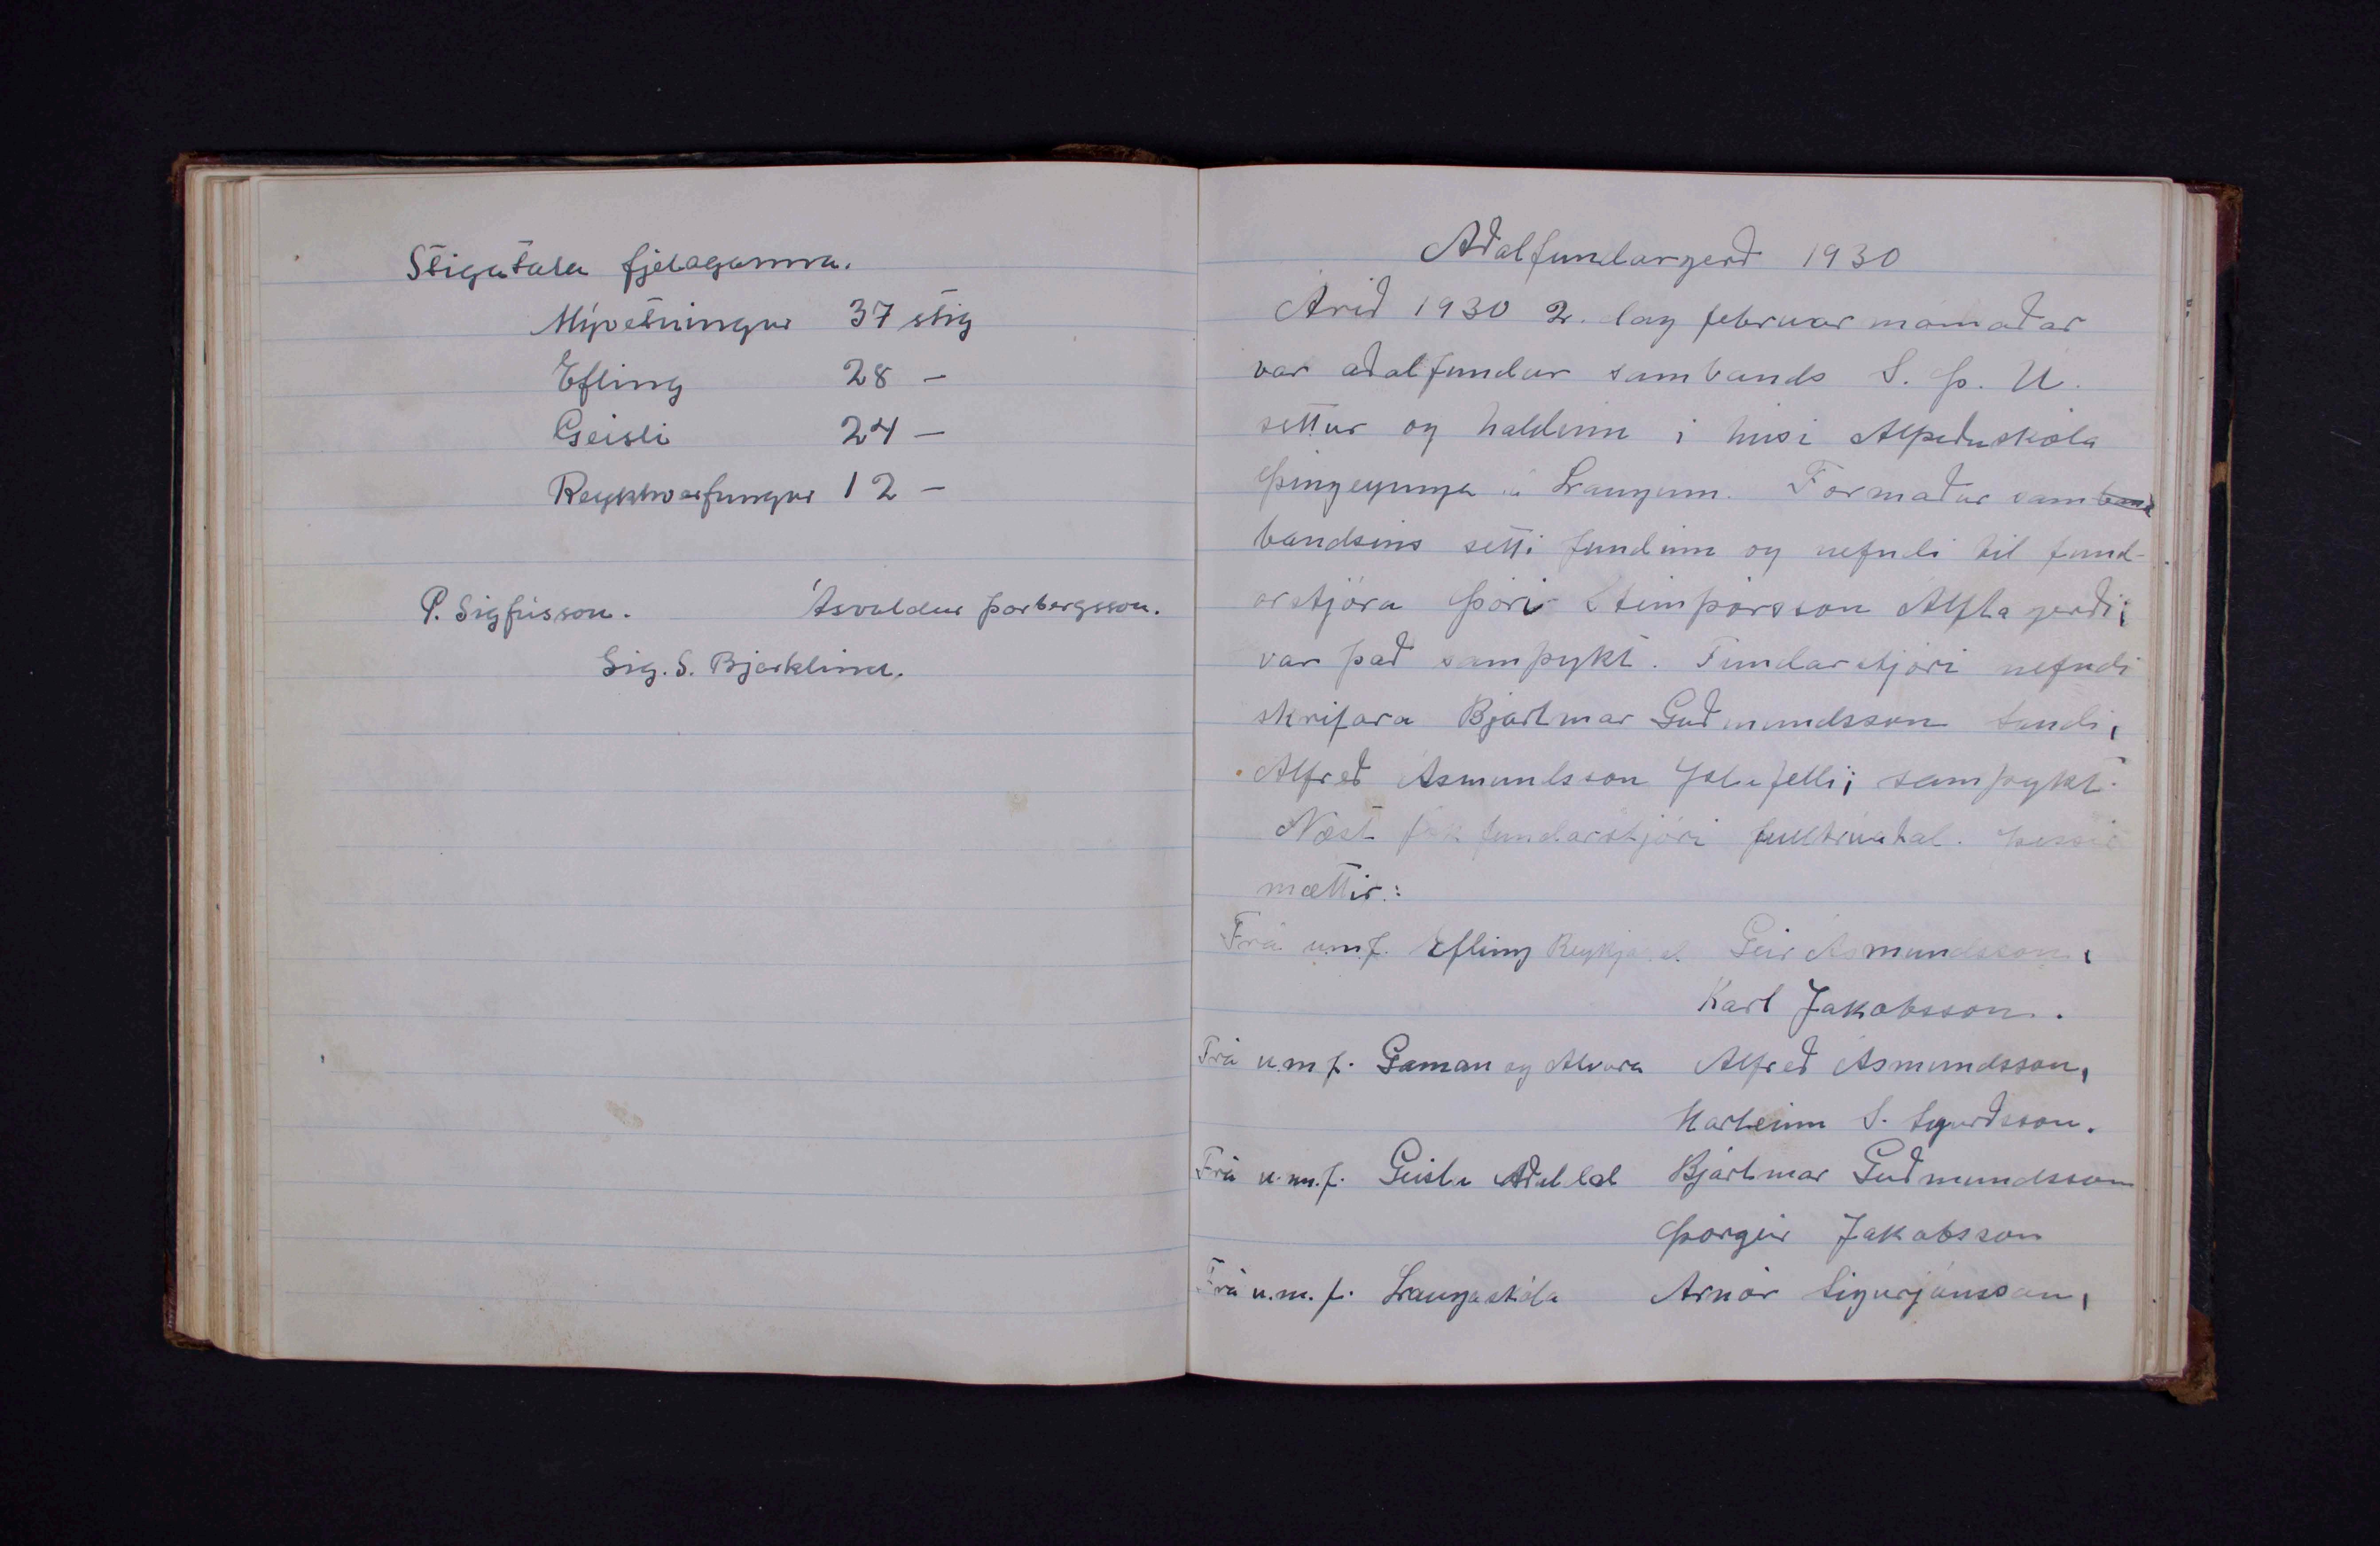 Stigatala fjelaganna.
Mývetningur 37 stig
Efling 28 –
Geisli 24 –
Reykhverfungur 12 –
P. Sigfússon. Ásvaldur Þorbergsson.
Sig. S. Bjarklind.
Aðalfundargerð 1930
Árið 1930 2. dag februar mánaðar
var aðalfundur sambands S. Þ. U.
settur og haldinn i húsi Alþýðuskóla
Þingeyinga á Laugum. Formaður sam
bandsins setti fundinn og nefndi til fund-
arstjóra Þóri Steinþórsson Álftagerði;
var það samþykt. Fundarstjóri nefndi
skrifara Bjartmar Guðmundsson Sandi,
Alfreð Ásmundsson Hlíð; samþykt.
Næst fundarstjóri fulltrúatal. Þessir
mættir:
Frá u.m.f. Efling Reykjad. Geir Ásmundsson,
Karl Jakobsson.
Frá u.m.f. Gaman og Alvara Alfreð Ásmundsson,
Marteinn S. Sigurðsson.
Frá u.m.f. Geisla Aðaldal Bjartmar Guðmundsson
Þorgeir Jakobsson
Frá u.m.f. Laugaskóla Arnór Sigurjónsson,